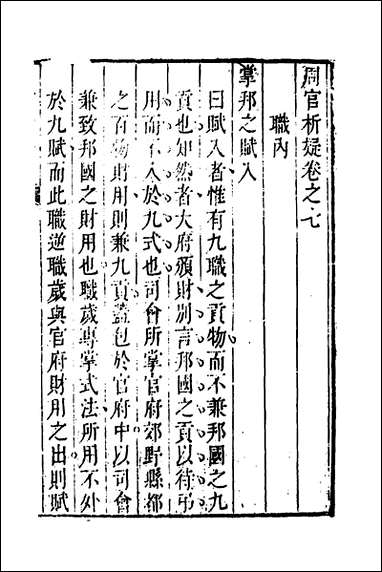 周官析疑卷之七
職內
掌邦之賦入
曰賦入者惟有九職之貢物而不兼邦國之九
貢也知然者大府頒財別言邦國之貢以待弔
用而不入於九式也司會所掌官府郊野縣都
之百物財用則兼九貢蓋包於官府中以司會
兼致邦國之財用也職歲專掌式法所用不外
於九賦而此職逆職歲與官府財用之出則賦